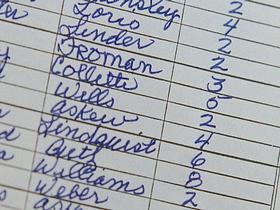 2
Lorio 4
Linder 2
Troman 2
Collette 3
Wells 5
Askew 2
Lindquist 4
Getz 6
Williams 8
Weber 2